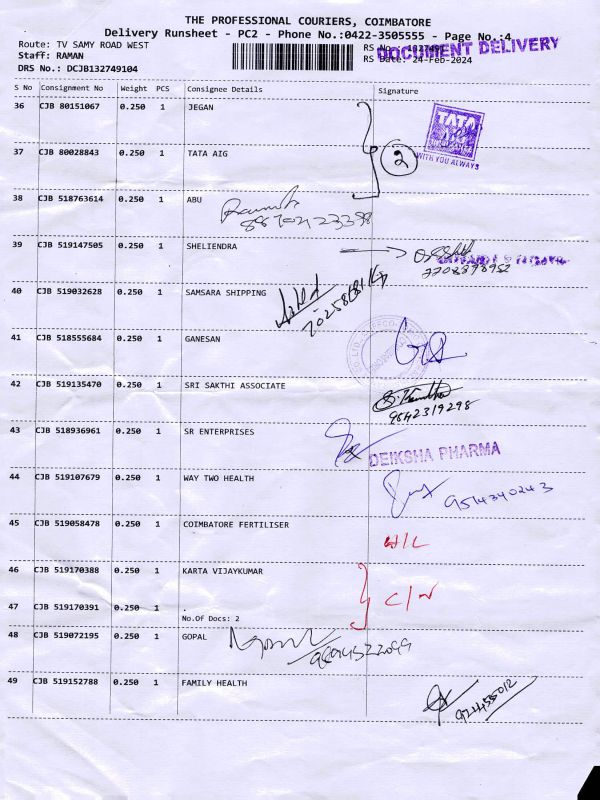 THE PROFESSIONAL COURIERS, COIMBATORE
Delivery Runsheet - PC2 - Phone No.:0422-3505555 - Page No.:4
Route: TV SAMY ROAD WEST
RS No.:
DOCUMENT DELIVERY
Staff: RAMAN
RS Date: 24-Feb-2024
DRS No.: DCJB132749104
S No Consignment No Weight PCS Consignee Details Signature
36 CJB 80151067 0.250 1 JEGAN
TATA
WITH YOU ALWAYS
37 CJB 80028843 0.250 1 TATA AIG
2
38 CJB 518763614 0.250 1 ABU
39 CJB 519147505 0.250 1 SHELIENDRA
40 CJB 519032628 0.250 1 SAMSARA SHIPPING
41 CJB 518555684 0.250 1 GANESAN
42 CJB 519135470 0.250 1 SRI SAKTHI ASSOCIATE
9842319298
43 CJB 518936961 0.250 1 SR ENTERPRISES
DEIKSHA PHARMA
44 CJB 519107679 0.250 1 WAY TWO HEALTH
9514340243
45 CJB 519058478 0.250 1 COIMBATORE FERTILISER
46 CJB 519170388 0.250 1 KARTA VIJAYKUMAR
47 CJB 519170391 0.250 1 .
No.Of Docs: 2
48 CJB 519072195 0.250 1 GOPAL
49 CJB 519152788 0.250 1 FAMILY HEALTH